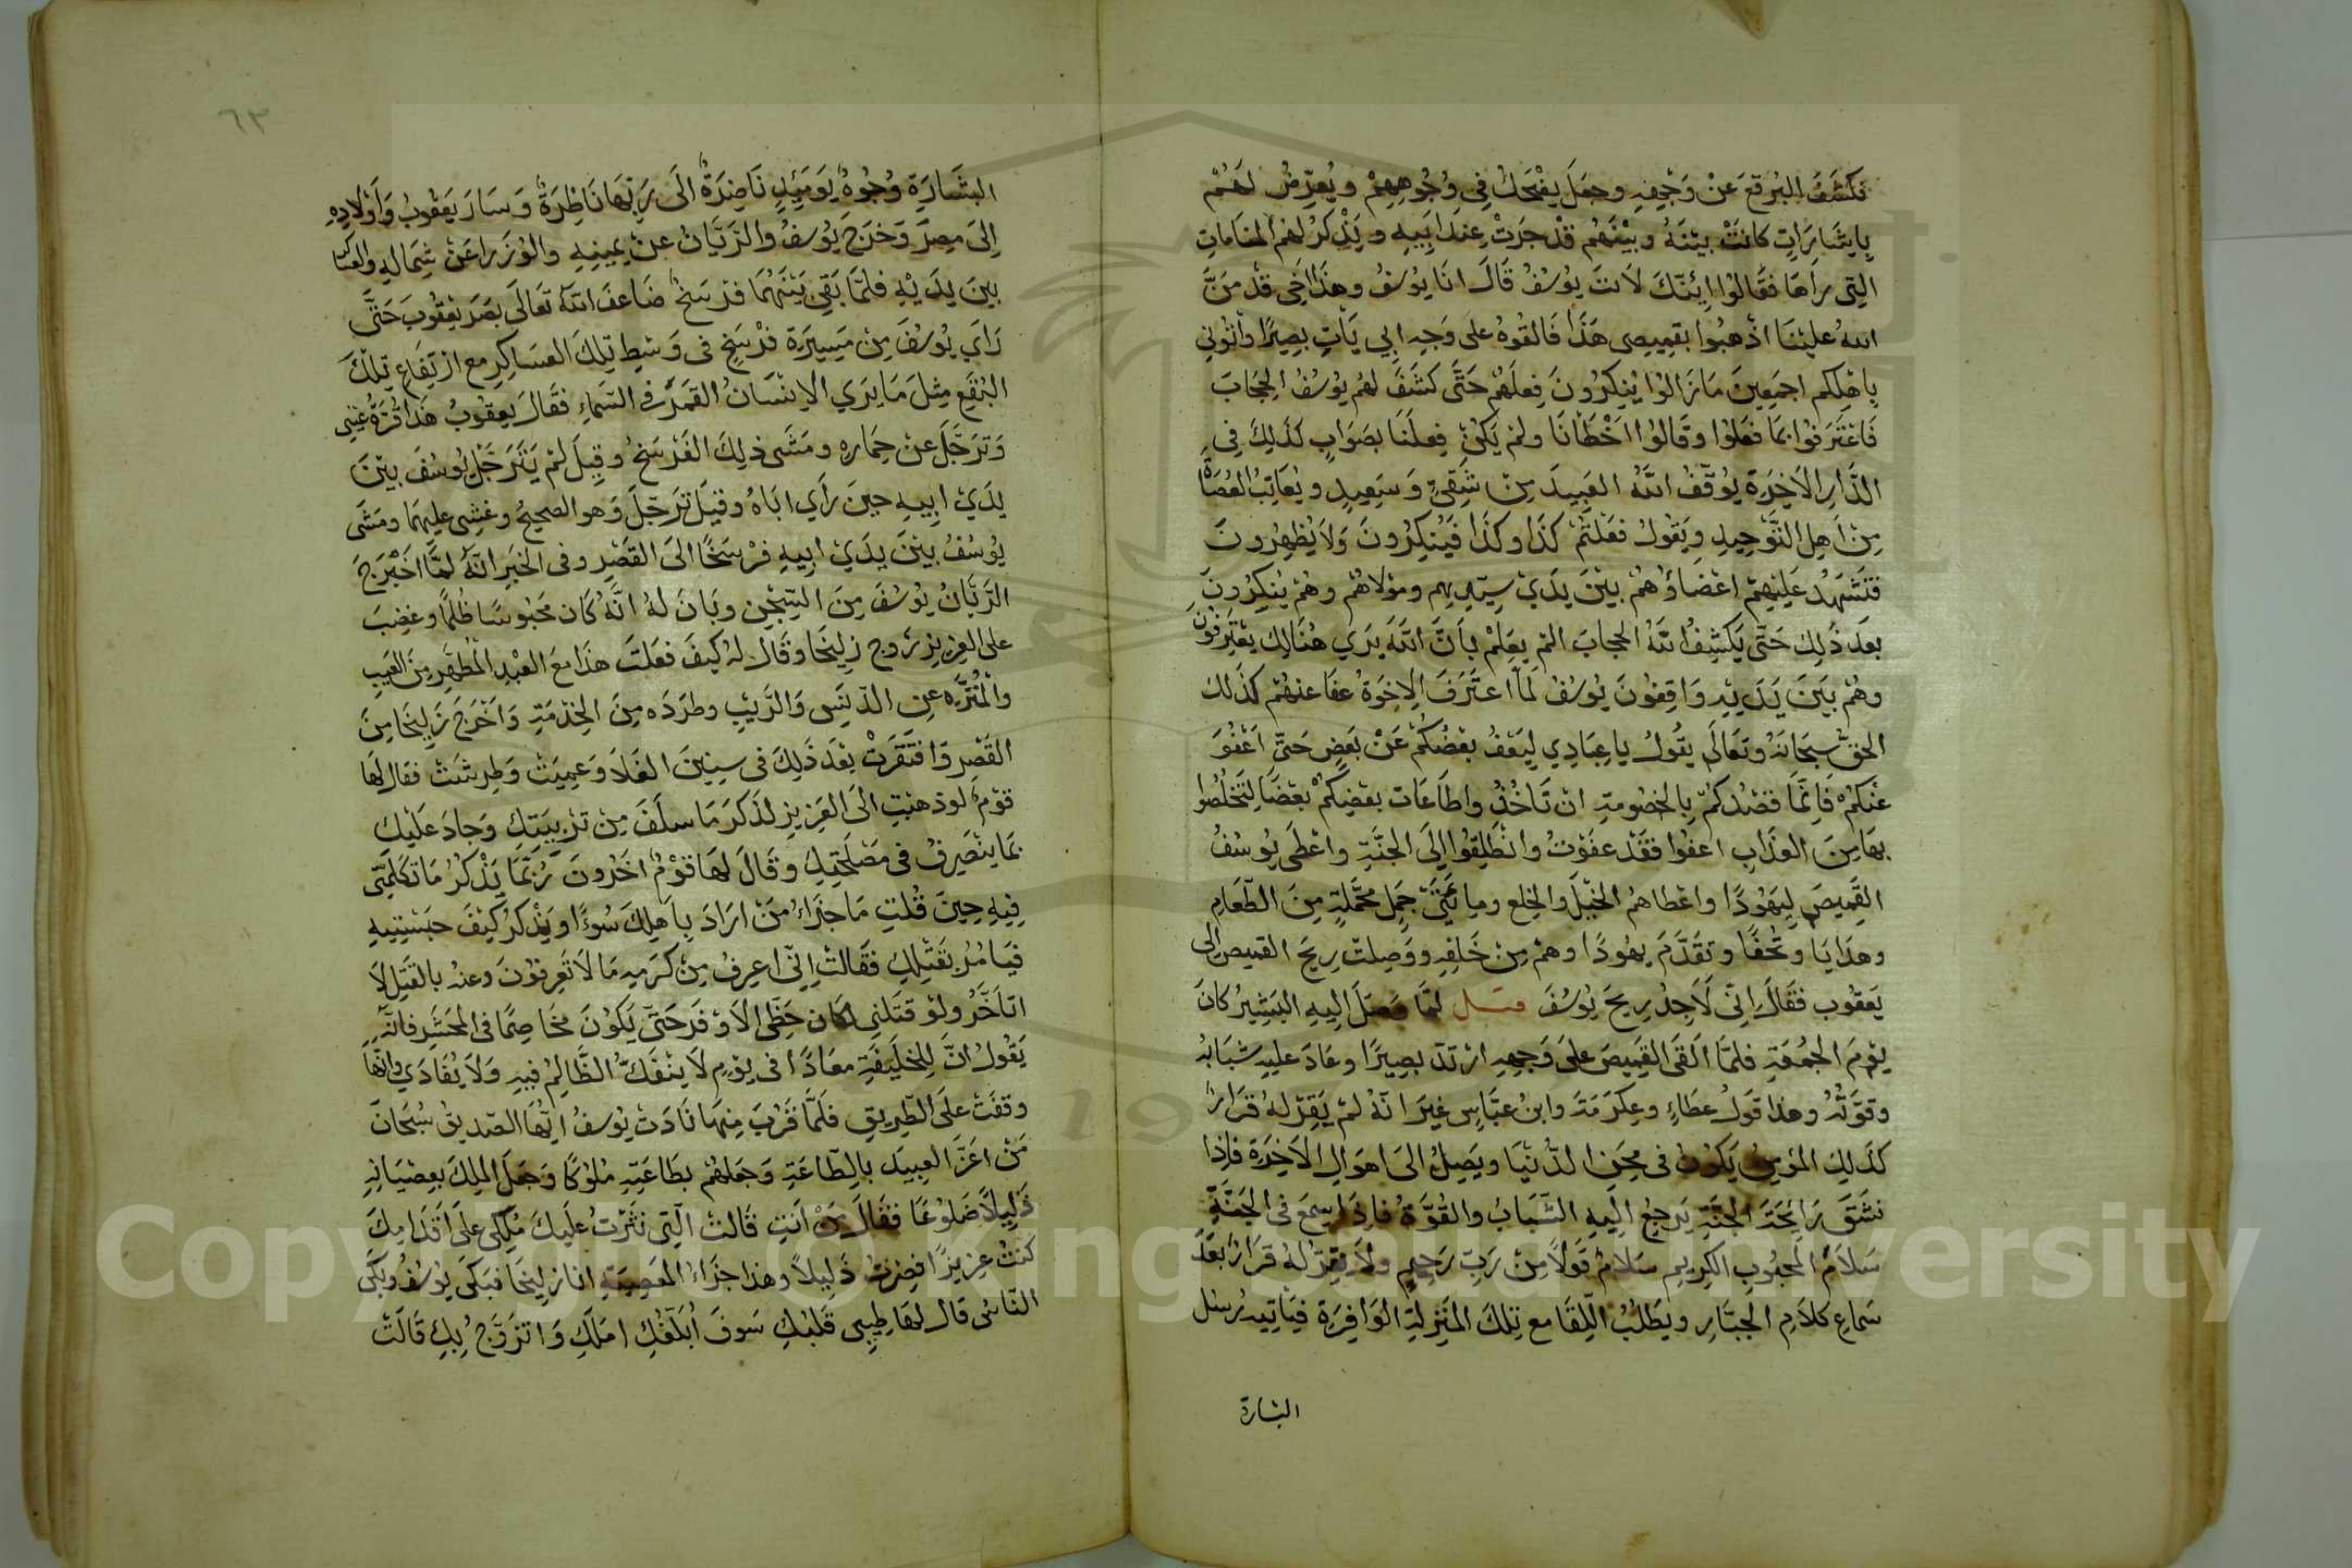 فكشف البرقع عن وجهه وجعل يضحك في وجوههم ويعرض لهم
بإشارات كانت بينه وبينهم قد جرت عند ابيه ويذكر لهم المنامات
التي رآها فقالوا ائنك لانت يوسف قال انا يوسف وهذا اخي قد من
الله علينا اذهبوا بقميصي هذا فالقوه على وجه ابي يأت بصيرا وأتوني
باهلكم اجمعين ما زالوا ينكرون فعلهم حتى كشف لهم يوسف الحجاب
فاعترفوا بما فعلوا وقالوا اخطأنا ولم يكن فعلنا بصواب كذلك في
الدار الاخرة يوقف الله العبيد من شقي وسعيد ويعاتب العصاة
من اهل التوحيد ويقول فعلتم كذا وكذا فينكرون ولا يظهرون
فتشهد عليهم اعضاؤهم بين يدي سيدهم ومولاهم وهم ينكرون
بعد ذلك حتى يكشف الله الحجاب الم يعلم بأن الله يري هنالك يعترفون
وهم بين يديه واقفون يوسف لما اعترف الاخوة عفا عنهم كذلك
الحق سبحانه وتعالى يقول يا عبادي ليعف بعضكم عن بعض حتى اعفو
عنكم فانما قصدكم بالخصومة ان تاخذوا طاعات بعضكم بعضا لتخلصوا
بها من العذاب اعفوا فقد عفوت وانطلقوا إلى الجنة واعطى يوسف
القميص ليهودا واعطاهم الخيل والخلع ومايتي جمل محملة من الطعام
وهدايا وتحفا وتقدم يهودا وهم من خلفه ووصلت ريح القميص الى
يعقوب فقال إني لاجد ريح يوسف لما فصل إليه البشير كان
يوم الجمعة فلما القى القميص على وجهه ارتد بصيرا وعاد عليه شبابه
وقوته وهذا قول عطاء وعكرمة وابن عباس غير انه لم يقر له قرار
كذلك المؤمن يكون في محن الدنيا ويصل الى اهوال الاخرة فاذا
نشق رائحة الجنة يرجع إليه الشباب والقوة فاذا سمع في الجنة
سلام المحبوب الكريم سلام قولا من رب رحيم ولا يقر له قرار بعد
سماع كلام الجبار ويطلب اللقا مع تلك المنزلة الوافرة فيأتيه رسل
البشارة
٦٣
البشارة وجوه يومئذ ناضرة الى ربها ناظرة وسار يعقوب وأولاده
إلى مصر وخرج يوسف والريان عن يمينه والوزرا عن شماله والعساكر
بين يديه فلما بقي بينهما فرسخ ضاعف الله تعالى بصر يعقوب حتى
رأي يوسف من مسيرة فرسخ في وسط تلك العساكر مع ارتفاع تلك
البقع مثل ما يري الانسان القمر في السماء فقال يعقوب هذا قرة عيني
وترجل عن حماره ومشى ذلك الفرسخ وقيل لم يترجل يوسف بين
يدي ابيه حين رأي اباه وقيل ترجل وهو الصحيح وغشي عليهما ومشى
يوسف بين يدي ابيه فرسخا الى القصر وفي الخبر انه لما اخرج
الريان يوسف من السجن وبان له انه كان محبوسا ظلما وغضب
على العزيز زوج زليخا وقال له كيف فعلت هذا مع العبد المطهر من العيب
والمنزه عن الدنس والريب وطرده من الخدمة واخرج زليخا من
القصر وافتقرت بعد ذلك في سنين الغلا وعميت وطرشت فقال لها
قوم لو ذهبت الى العزيز لذكر ما سلف من تربيتك وجاد عليك
بما ينصرف في مصلحتك وقال لها قوم اخرون ربما يذكر ما تكلمتي
فيه حين قلت ما جزاء من اراد باهلك سوءا ويذكر كيف حبستيه
فيأمر بقتلك فقالت إني اعرف من كرمه ما لا تعرفون وعنه بالقتل لا
اتأخر ولو قتلني لكان حظي الاوفر حتى يكون مخاصما في المحشر فانه
يقول ان للخليفة معادا في يوم لا ينفك الظالم فيه ولا يفادي وانها
وقفت على الطريق فلما قرب منها نادت يوسف ايها الصديق سبحان
من اعز العبيد بالطاعة وجعلهم بطاعته ملوكا وجعل الملك بعصيانه
ذليلا ضلوعا فقال من انت قالت التي نثرت عليك ملكي على اقدامك
كنت عزيزا فصرت ذليلا وهذا جزاء المعصية انا زليخا فبكى يوسف وبكى
الناس قال لها طيبي قلبك سوف ابلغك املك واتزوج بك قالت
Copyright © King Saud University